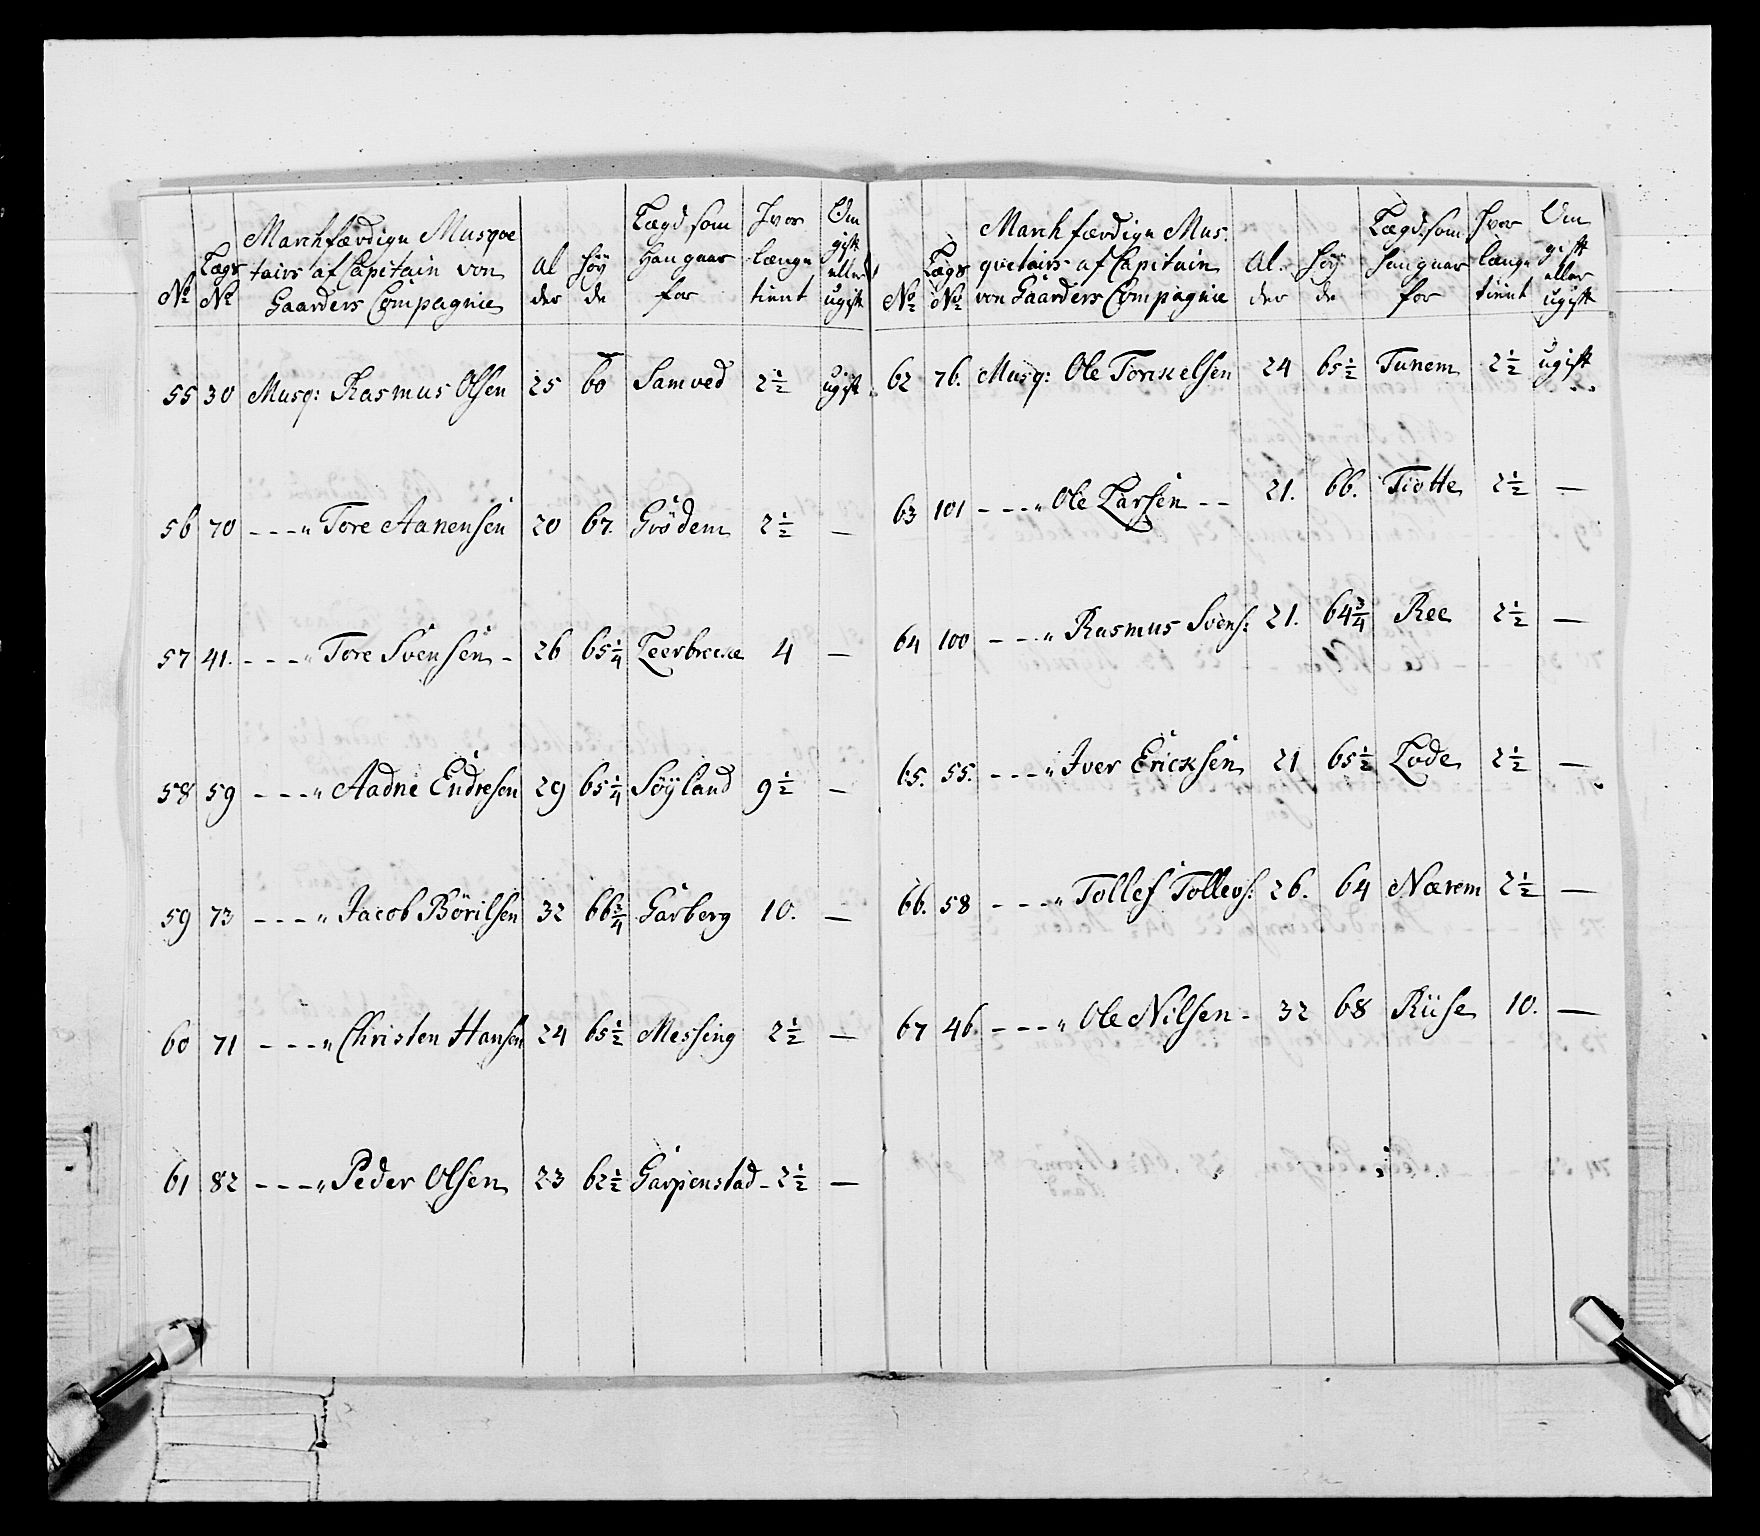 No
Lægs No
Marchfærdige Musqve
tairs af Capitain von
Gaarders Compagnie
Al
der
Höy
de
Lægd som
Han gaar
for
Hvor
længe
tient
Om
gift
eller
ugift
55 30 Musq: Rasmus Olsen 25 60 Sam ved 2½ ugift
56 70 - - - „ Tore Aanensen 20 67. Grödem 2½ —
57 41. - - - „ Tore Svensen - 26 65¼ Leerbrecke 4 —
58 59 - - - „ Aadne Endresen 29 65¼ Söyland 9½ —
59 73 - - - „ Jacob Börilsen 32 66¾ Garberg 10. —
60 71 - - - „ Christen Hansen 24 65½ Messing 2½ —
61 82 - - - „ Peder Olsen 23 62½ Garpenstad - 2½ —
No
Lægs No
March færdige Mus:
qvetairs af Capitain
von Gaarders Compagnie
Al.
der
Höy
de
Lægd som
han gaar
for
Hvor
længe
tient
Om
gift
eller
ugift
62 76. Musq: Ole Torckelsen 24 65½ Tunem 2½ ugift
63 101 - - - „ Ole Larsen - - 21. 66. Tiotte 2½ —
64 100 - - - „ Rasmus Svens: 21. 64¾ Ree 2½ —
65. 55. - - - „ Iver Ericksen 21 65½ Lode 2½ —
66. 58 - - - „ Tollef Tollevs: 26. 64 Nærem 2½ —
67 46. - - - „ Ole Nilsen - 32 68 Riise 10. —